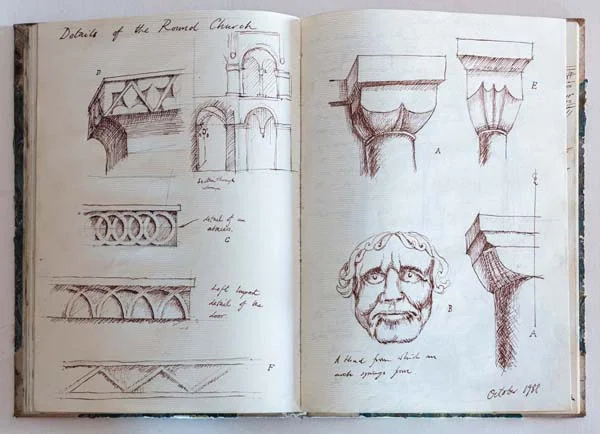 Details of the Round Church
D
Section through
detail of an
abacus.
Left Impost
detail of the
door.
F
E
A
B
A
A Head from which an
arch springs
October